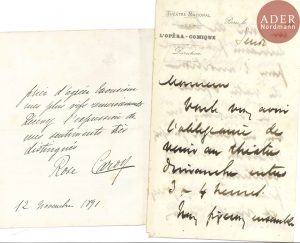 ADER
Nordmann
THÉATRE NATIONAL
DE
L'OPÉRA-COMIQUE
Direction
Paris, le
Monsieur
l'obligeance de
venir au théâtre
dimanche entre
3 & 4 heures
ensemble
d'agréer Monsieur
mes plus vifs remerciements
l'expression de
mes sentiments très
distingués
Rose Caron
12 novembre 1891